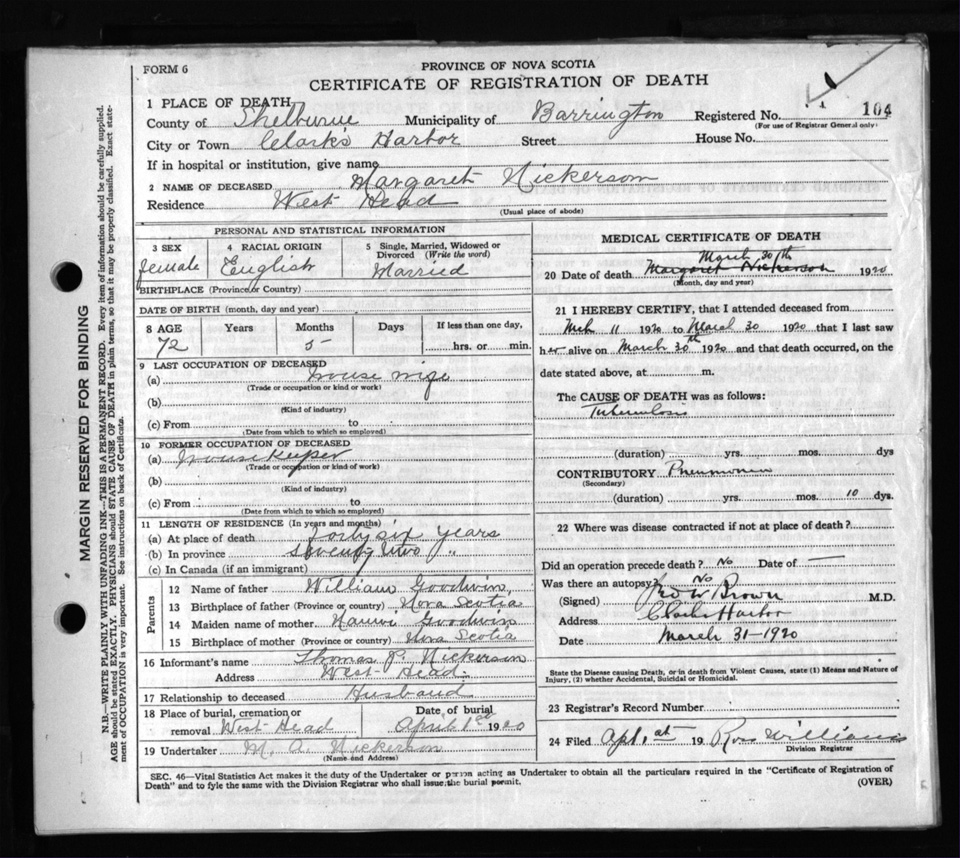 FORM 6
PROVINCE OF NOVA SCOTIA
CERTIFICATE OF REGISTRATION OF DEATH
1 PLACE OF DEATH
County of Shelburne Municipality of Barrington Registered No. 104
(For use of Registrar General only)
City or Town Clark's Harbor Street House No.
If in hospital or institution, give name
2 NAME OF DECEASED Margaret Nickerson
Residence West Head
(Usual place of abode)
PERSONAL AND STATISTICAL INFORMATION
3 SEX 4 RACIAL ORIGIN 5 Single, Married, Widowed or Divorced (Write the word)
female English Married
BIRTHPLACE (Province or Country)
DATE OF BIRTH (month, day and year)
8 AGE Years Months Days If less than one day,
72 5 hrs. or min.
9 LAST OCCUPATION OF DECEASED
(a) House wife
(Trade or occupation or kind or work)
(b)
(Kind of industry)
(c) From to
(Date from which to which so employed)
10 FORMER OCCUPATION OF DECEASED
(a) House Keeper
(Trade or occupation or kind of work)
(b)
(Kind of industry)
(c) From to
(Date from which to which so employed)
11 LENGTH OF RESIDENCE (In years and months)
(a) At place of death forty six years
(b) In province seventy two "
(c) In Canada (if an immigrant)
Parents
12 Name of father William Goodwin
13 Birthplace of father (Province or country) Nova Scotia
14 Maiden name of mother Goodwin
15 Birthplace of mother (Province or country) Nova Scotia
16 Informant's name Thomas P. Nickerson
Address West Head
17 Relationship to deceased Husband
18 Place of burial, cremation or Date of burial
removal West Head April 1st 1920
19 Undertaker M. A. Nickerson
(Name and Address)
MEDICAL CERTIFICATE OF DEATH
March 30th
20 Date of death Margaret Nickerson 1920
(Month, day and year)
21 I HEREBY CERTIFY, that I attended deceased from
Mch 11 1920 to March 30 1920 that I last saw
her alive on March 30th 1920 and that death occurred, on the
date stated above, at m.
The CAUSE OF DEATH was as follows:
Tuberculosis
(duration) yrs. mos. dys
CONTRIBUTORY Pneumonia
(Secondary)
(duration) yrs. mos. 10 dys.
22 Where was disease contracted if not at place of death?
Did an operation precede death? No Date of —
Was there an autopsy? No
(Signed) Brown M.D.
Address Clarks Harbor
Date March 31-1920
State the Disease causing Death, or in death from Violent Causes, state (1) Means and Nature of
Injury, (2) whether Accidental, Suicidal or Homicidal.
23 Registrar's Record Number
24 Filed Apl. 1st 19 Ross Williams
Division Registrar
SEC. 46—Vital Statistics Act makes it the duty of the Undertaker or person acting as Undertaker to obtain all the particulars required in the "Certificate of Registration of
Death" and to fyle the same with the Division Registrar who shall issue the burial permit. (OVER)
MARGIN RESERVED FOR BINDING
N.B.—WRITE PLAINLY WITH UNFADING INK—THIS IS A PERMANENT RECORD. Every item of information should be carefully supplied.
AGE should be stated EXACTLY. PHYSICIANS should STATE CAUSE OF DEATH in plain terms, so that it may be properly classified. Exact state-
ment of OCCUPATION is very important. See instructions on back of Certificate.